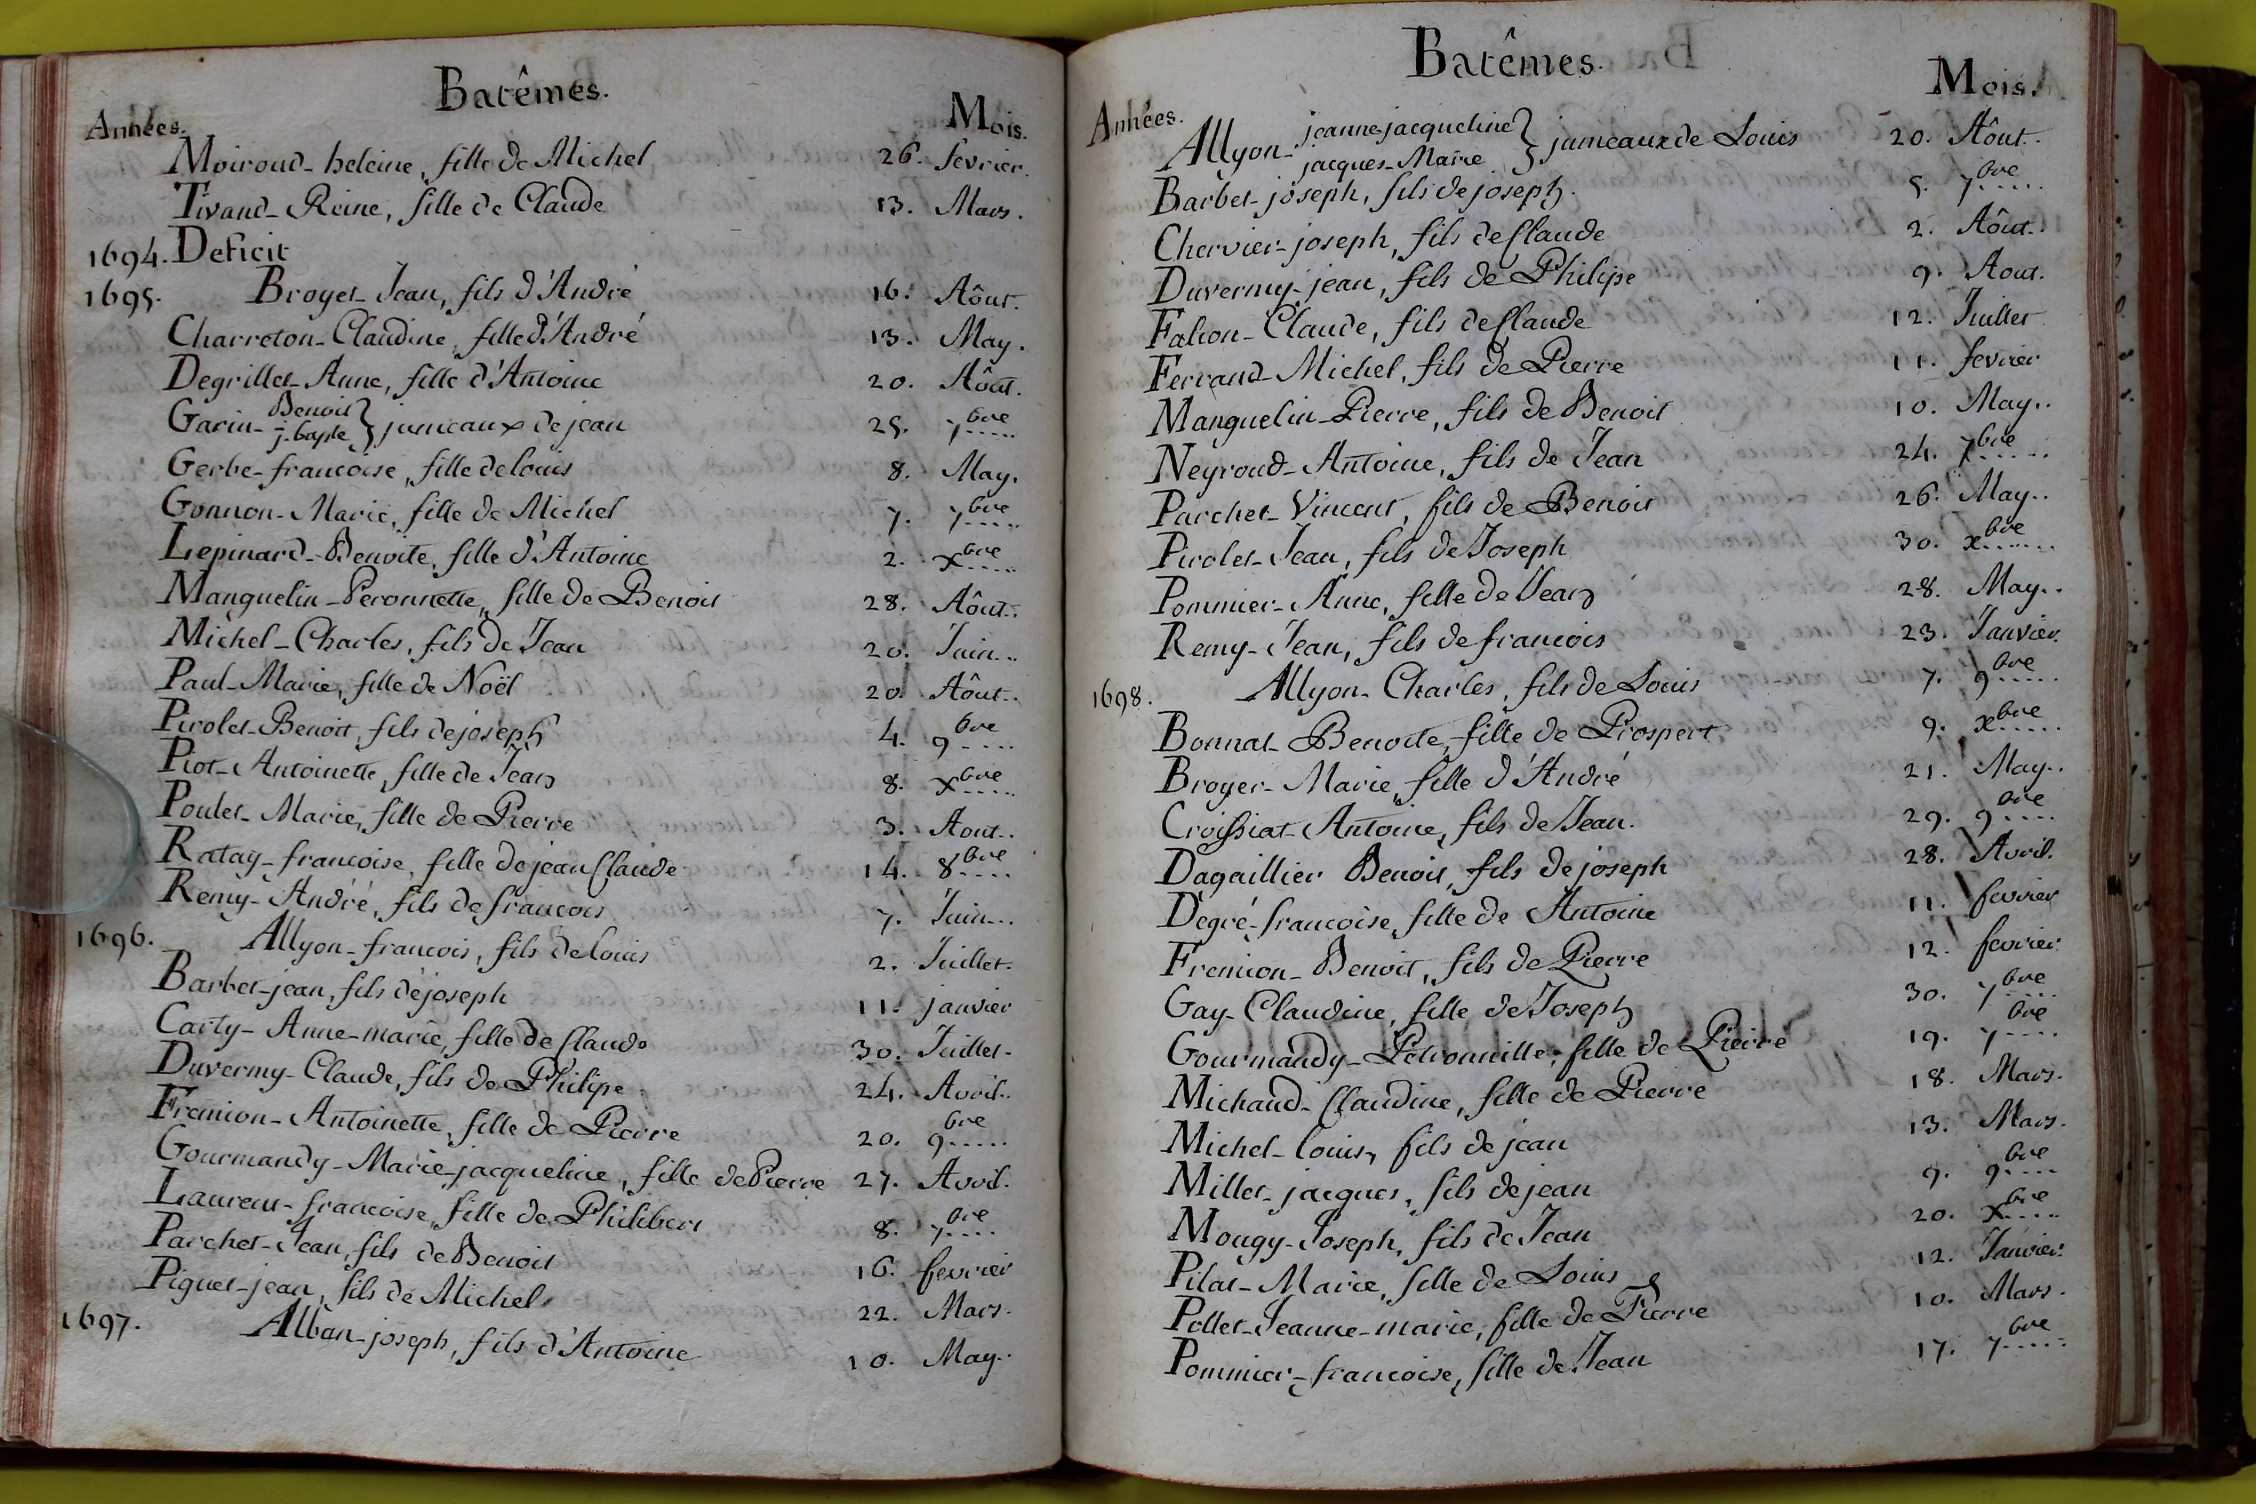 Batêmes.
Années. Mois.
Moiroud- heleine, fille de Michel 26. fevrier.
Tivand- Reine, fille de Claude 13. Mars.
1694. Deficit
1695. Broyet- Jean, fils d'André 16. Aôut.
Charreton- Claudine, fille d'André 13. May.
Degrillet- Anne, fille d'Antoine 20. Aôut.
Garin- Benoit j. baptte } jumeaux de jean 25. 7bre
Gerbe- francoise, fille de louis 8. May.
Gonnon- Marie, fille de Michel 7. 7bre
Lepinard- Benoite, fille d'Antoine 2. xbre
Manguelin- Peronnette, fille de Benoit 28. Aôut..
Michel- Charles, fils de Jean 20. Juin...
Paul- Marie, fille de Noël 20. Aôut..
Pirolet- Benoit, fils de joseph 4. 9bre
Piot- Antoinette, fille de Jean 8. xbre
Poulet- Marie, fille de Pierre 3. Aout..
Ratay- francoise, fille de jean Claude 14. 8bre
Remy- André, fils de francois 7. Juin...
1696. Allyon- francois, fils de louis 2. Juillet.
Barbet- jean, fils de joseph 11. janvier
Carty- Anne-marie, fille de Claude 30. Juillet-
Duvermy- Claude, fils de Philipe 24. Avril..
Fremion- Antoinette, fille de Pierre 20. 9bre
Gourmandy- Marie-jacqueline, fille de Pierre 27. Avril.
Laurent- francoise, fille de Philibert 8. 7bre
Parchet- Jean, fils de Benoit 16. fevrier
Piguet- jean, fils de Michel 22. Mars.
1697. Alban- joseph, fils d'Antoine 10. May..
Batêmes.
Années. Mois.
Allyon- jeanne-jacqueline jacques-Marie } jumeaux de Louis 20. Aôut..
Barbet- joseph, fils de joseph. 5. 7bre
Chervier- joseph, fils de Claude 2. Aôut.
Duvermy- jean, fils de Philipe 9. Aout.
Falion- Claude, fils de Claude 12. Juillet
Ferrand- Michel, fils de Pierre 11. fevrier
Manguelin- Pierre, fils de Benoit 10. May..
Neyroud- Antoine, fils de Jean 24. 7bre
Parchet- Vincent, fils de Benoit 26. May..
Pirolet- Jean, fils de Joseph 30. xbre
Pommier- Anne, fille de Jean 28. May..
Remy- Jean, fils de francois 23. Janvier.
1698. Allyon- Charles, fils de Louis 7. 9bre
Bonnat- Benoite, fille de Prospert 9. xbre
Broyer- Marie, fille d'André 21. May..
Croissiat- Antoine, fils de Jean. 29. 9bre
Dagaillier Benoit, fils de joseph 28. Avril.
Degré- francoise, fille de Antoine 11. fevrier
Fremion- Benoit, fils de Pierre 12. fevrier
Gay- Claudine, fille de Joseph 30. 7bre
Gourmandy- Petronnille, fille de Pierre 19. 7bre
Michaud- Claudine, fille de Pierre 18. Mars.
Michel- louis, fils de jean 13. Mars.
Millet- jacques, fils de jean 9. 9bre
Mougy- Joseph, fils de Jean 20. xbre
Pilat- Marie, fille de Louis 12. Janvier.
Pollet- Jeanne-marie, fille de Pierre 10. Mars.
Pommier- francoise, fille de Jean 17. 7bre